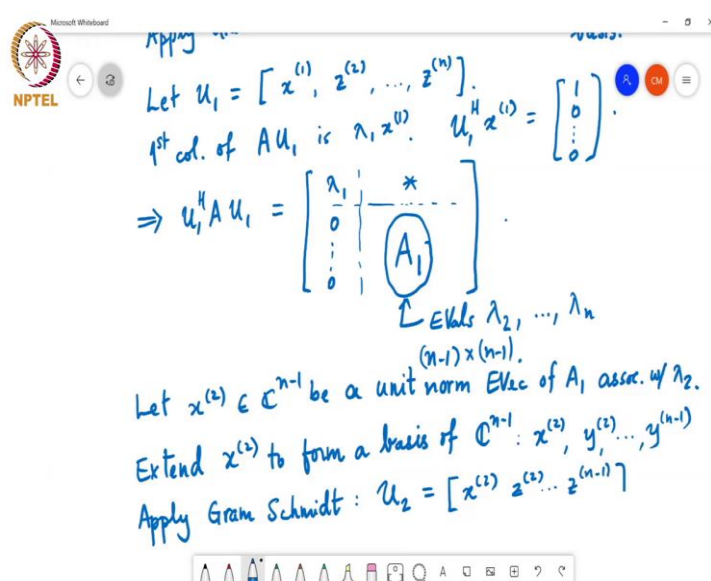 Microsoft Whiteboard
NPTEL
CM
Apply
Let U₁ = [x⁽¹⁾, z⁽²⁾, ..., z⁽ⁿ⁾].
1st col. of AU₁ is λ₁x⁽¹⁾. U₁ᴴx⁽¹⁾ = [1 0 ⋮ 0].
⇒ U₁ᴴAU₁ = [λ₁ * 0 ⋮ 0 A₁].
EVals λ₂, ..., λₙ
(n-1)×(n-1).
Let x⁽²⁾ ∈ ℂⁿ⁻¹ be a unit norm EVec of A₁ assoc. w/ λ₂.
Extend x⁽²⁾ to form a basis of ℂⁿ⁻¹: x⁽²⁾, y⁽²⁾, ..., y⁽ⁿ⁻¹⁾
Apply Gram Schmidt: U₂ = [x⁽²⁾ z⁽²⁾ ... z⁽ⁿ⁻¹⁾]